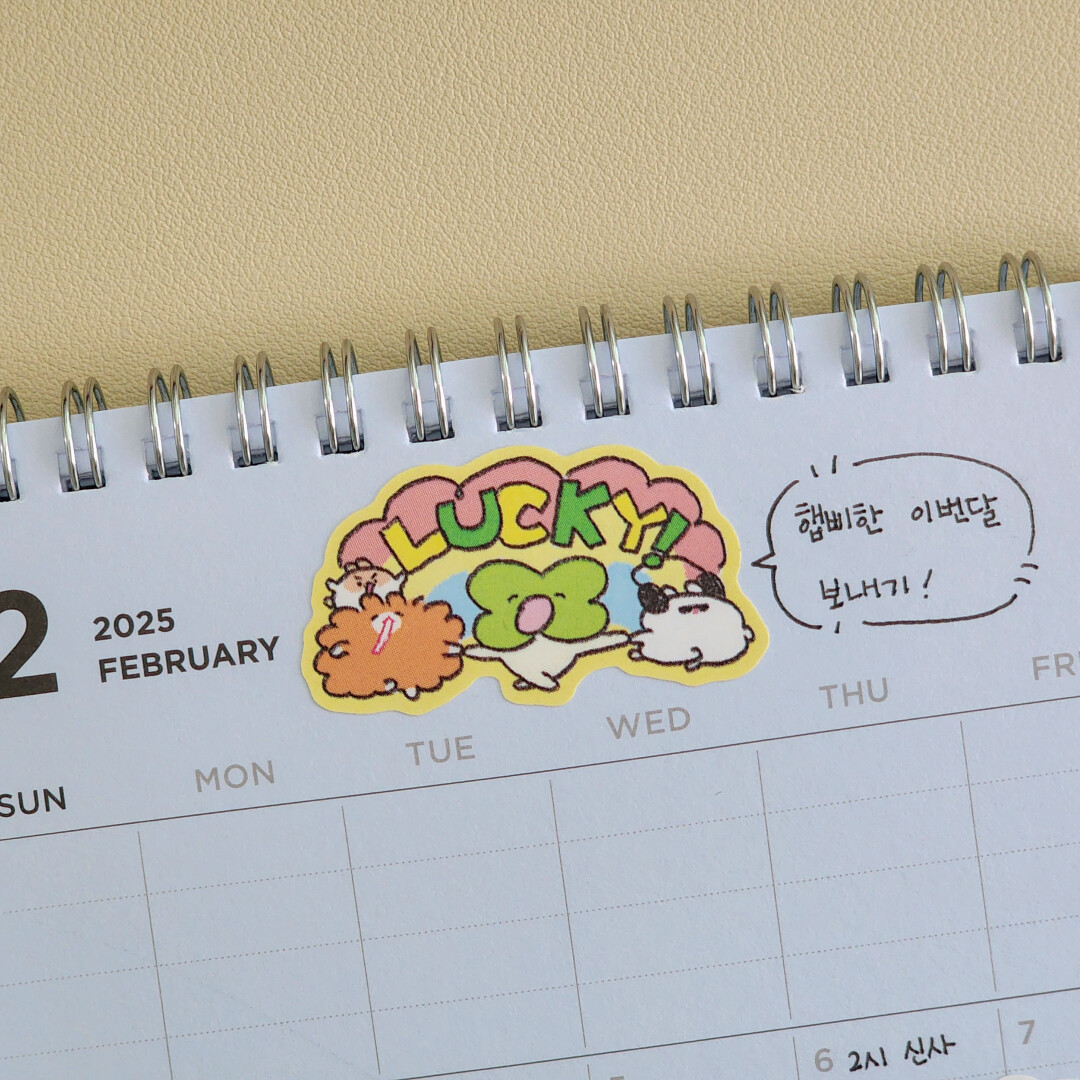 LUCKY!
햅삐한 이번달
보내기!
2
2025
FEBRUARY
SUN MON TUE WED THU FRI
6 2시 신사 7